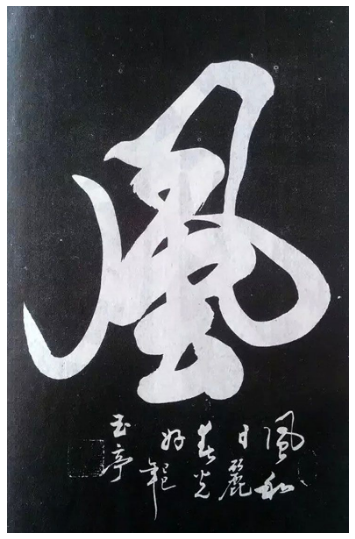 風
風和
日麗
春光
好
玉亭